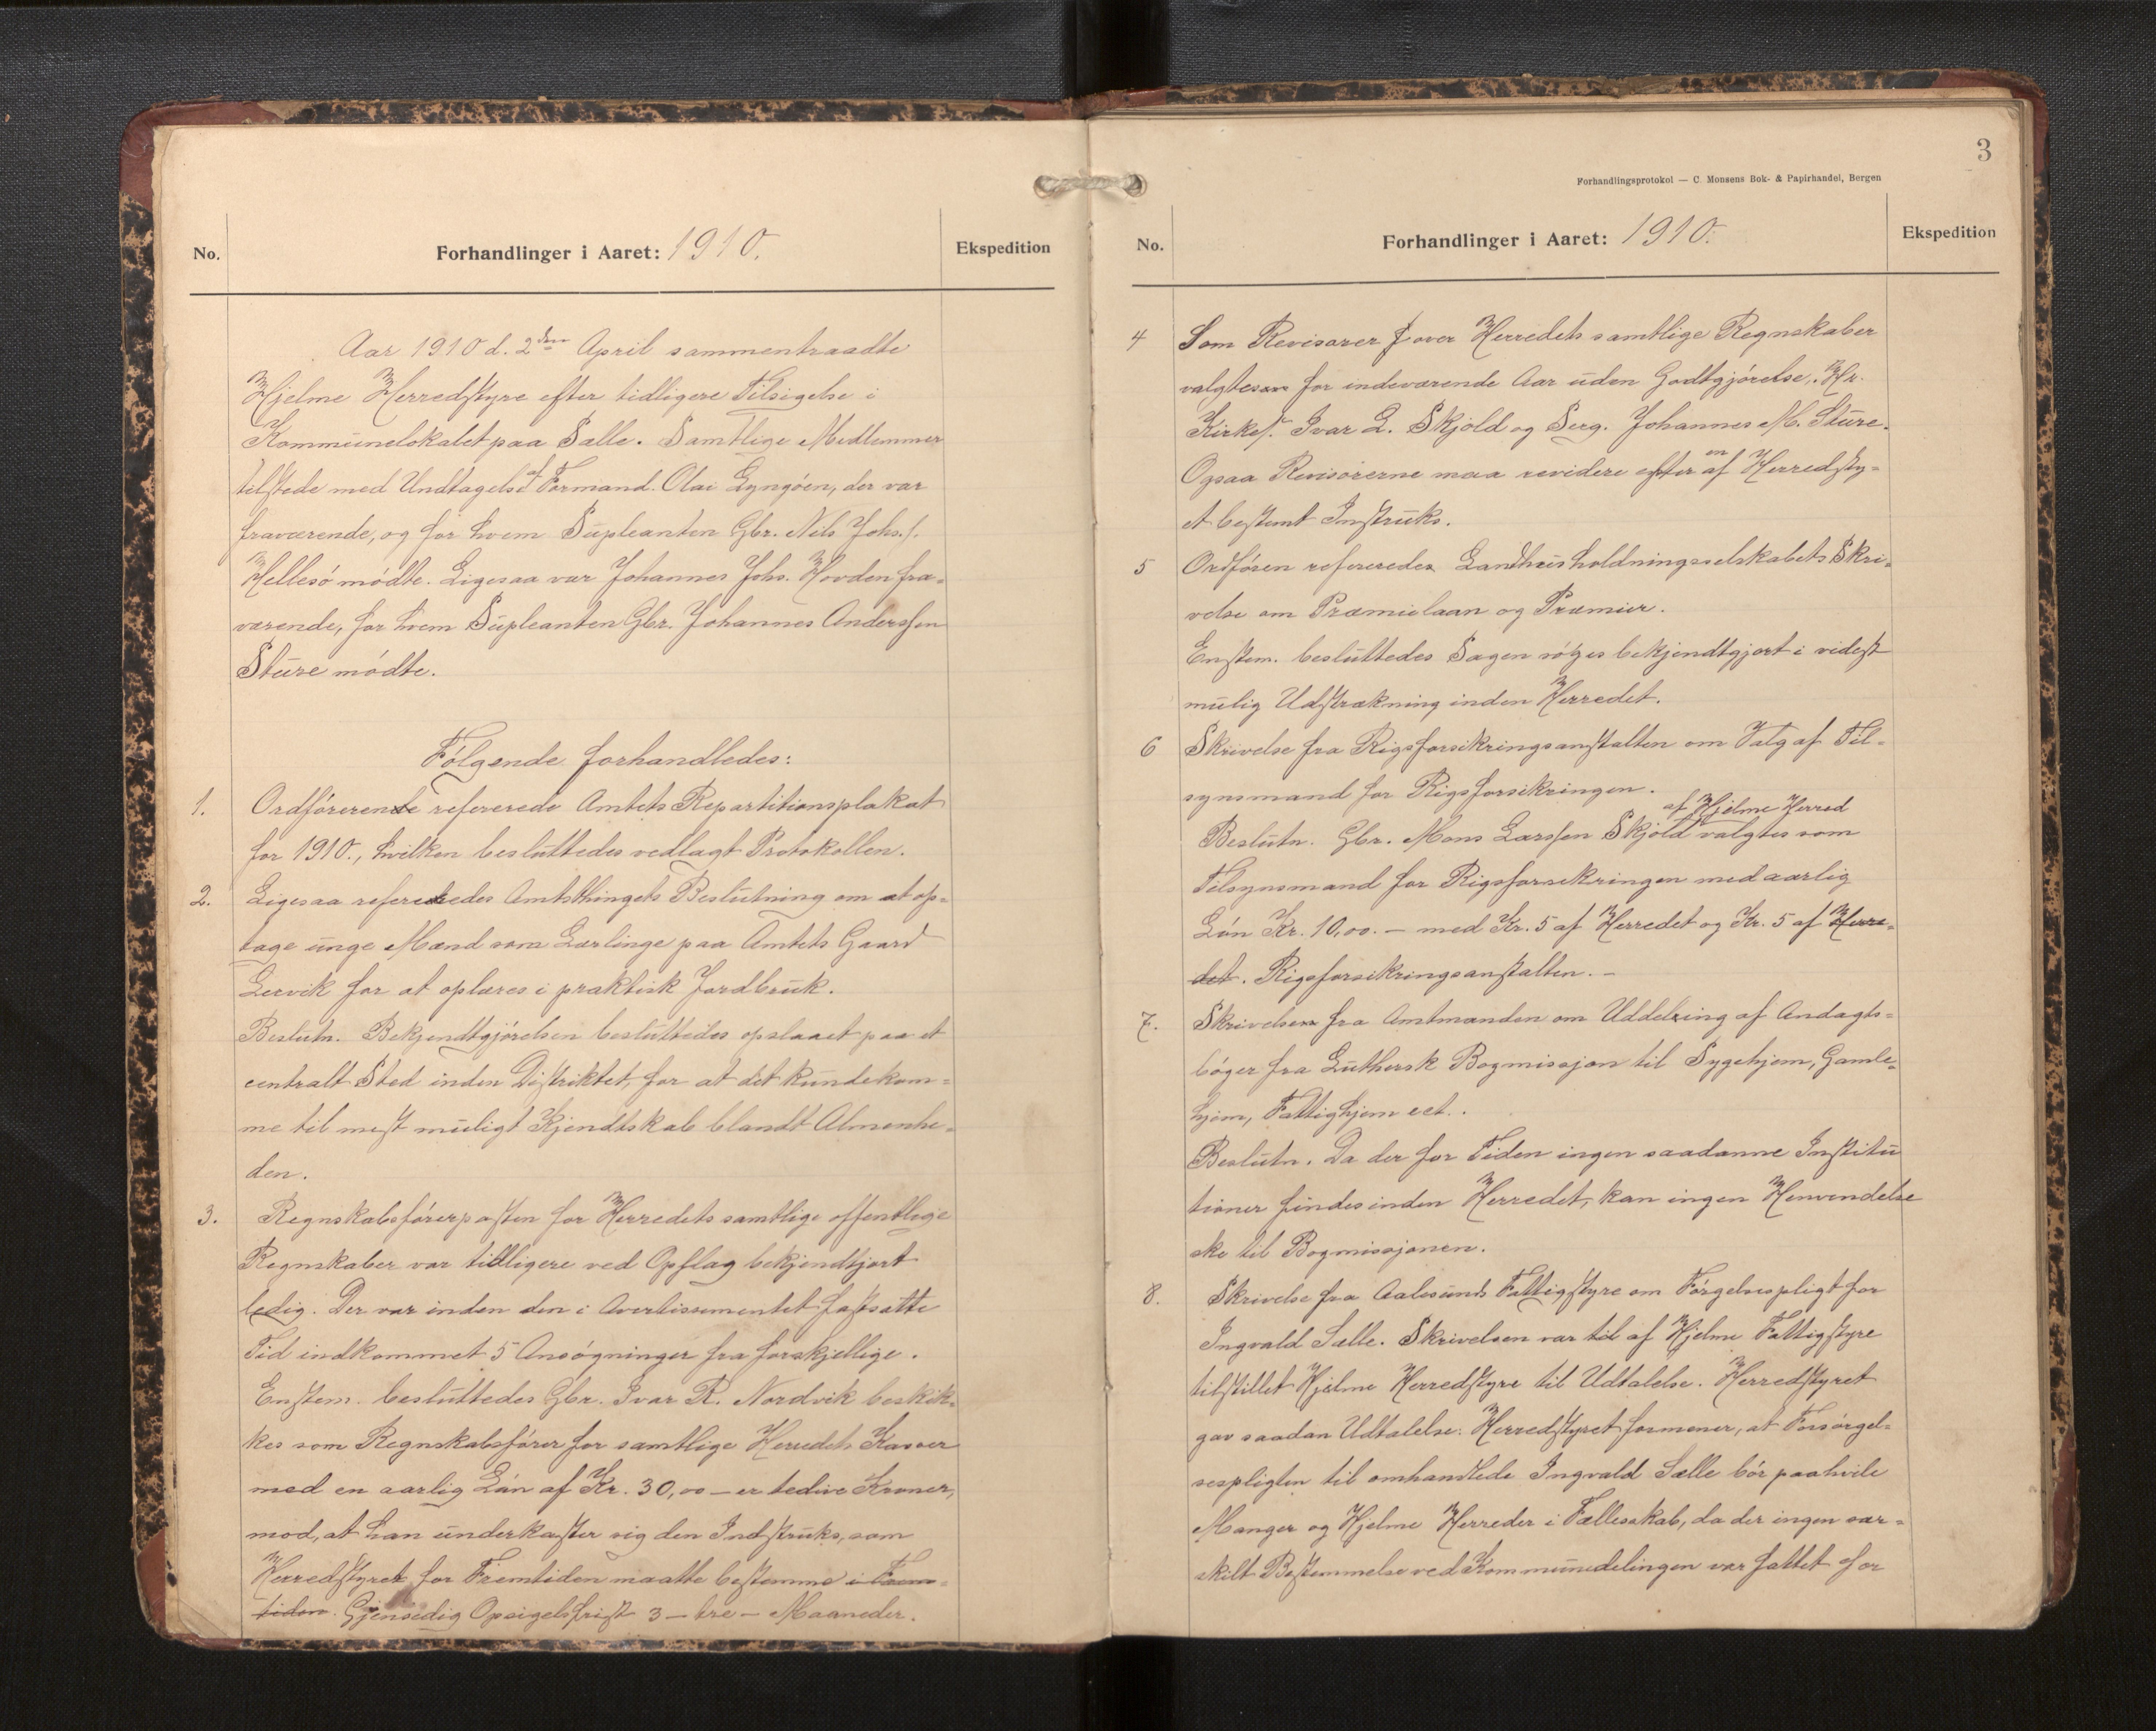 No.
Forhandlinger i Aaret: 1910.
Ekspedition
Aar 1910 d. 2den April sammentraadte
Hjelme Herredstyre efter tidligere Tilsigelse i
Kommunelokalet paa Sælle. Samtlige Medlemmer
tilstede med Undtagelse af Formand. Olai Lyngöen, der var
fraværende, og for hvem Supleanten Gbr. Nils Johs.s.
Hellesö mödte. Ligesaa var Johannes Johs. Hovden fra-
værende, for hvem Supleanten Gbr. Johannes Anderssen
Sture mödte.
Fölgende forhandledes:
1. Ordförerende refererede Amtets Repartitionsplakat
for 1910., hvilken besluttedes vedlagt Protokollen.
2. Ligesaa refereredes Amtsthingets Beslutning om at op-
tage unge Mænd som Lærlinge paa Amtets Gaard
Lervik for at oplæres i praktisk Jordbruk.
Beslutn. Bekjendtgjörelsen besluttedes opslaaet paa et
centralt Sted inden Distriktet, for at det kunde kom-
me til mest muligt Kjendtskab blandt Almenhe-
den.
3. Regnskabsförerposten for Herredets samtlige offentlige
Regnskaber var tidligere ved Opslag bekjendtjort
ledig. Der var inden den i Avertissementet fastsatte
Tid indkommet 5 Ansögninger fra forskjellige.
Enstem. besluttedes Gbr. Ivar R. Nordvik beskik-
kes som Regnskabsförer for samtlige Herredets Kasser
med en aarlig Lön af Kr. 30,00 – er tedive Kroner,
mod, at han underkaster sig den Indstruks, som
Herredstyret for Fremtiden maatte bestemme i Frem-
tiden. Gjensidig Opsigelsfrist 3 – tre – Maaneder.
3
Forhandlingsprotokol — C. Monsens Bok- & Papirhandel, Bergen
No.
Forhandlinger i Aaret: 1910.
Ekspedition
4 Som Revisorer f over Herredets samtlige Regnskaber
valgtes for indeværende Aar uden Godtgjörelse. Hr.
Kirkes. Ivar L. Skjold og Serg. Johannes M. Sture.
Ogsaa Revisorerne maa revidere efter en af Herredsty-
et bestemt Instruks.
5 Ordfören refererede Landhusholdningsselskabets Skri-
velse om Præmielaan og Præmier.
Enstem. besluttedes Sagen söges bekjendtgjort i videst
mulig Udstrækning inden Herredet.
6 Skrivelse fra Rigsforsikringsanstalten om Valg af Til-
synsmand for Rigsforsikringen.
Beslutn. Gbr. Mons Larssen Skjold af Hjelme Herred valgtes som
Tilsynsmand for Rigsforsikringen med aarlig
Lön Kr. 10,00. – med Kr. 5 af Herredet og Kr. 5 af Herre-
det. Rigsforsikringsanstalten. –
7. Skrivelsen fra Amtmanden om Uddeling af Andagts-
böger fra Luthersk Bogmissjon til Sygehjem, Gamle-
hjem, Fattighjem ect..
Beslutn. Da der for Tiden ingen saadanne Institu
tioner findes inden Herredet, kan ingen Henvendelse
ske til Bogmissjonen.
8. Skrivelse fra Aalesunds Fattigstyre om Förgelsespligt for
Ingvald Sælle. Skrivelsen var til af Hjelme Fattigstyre
tilstillet Hjelme Herredstyre til Udtalelse. Herredstyret
gav saadan Udtalelse: Herredstyret formener, at Forsörgel-
sespligten til omhandlede Ingvald Sælle bör paahvile
Manger og Hjelme Herreder i Fællesskab, da der ingen sær-
skilt Bestemmelse ved Kommunedelingen var fattet for